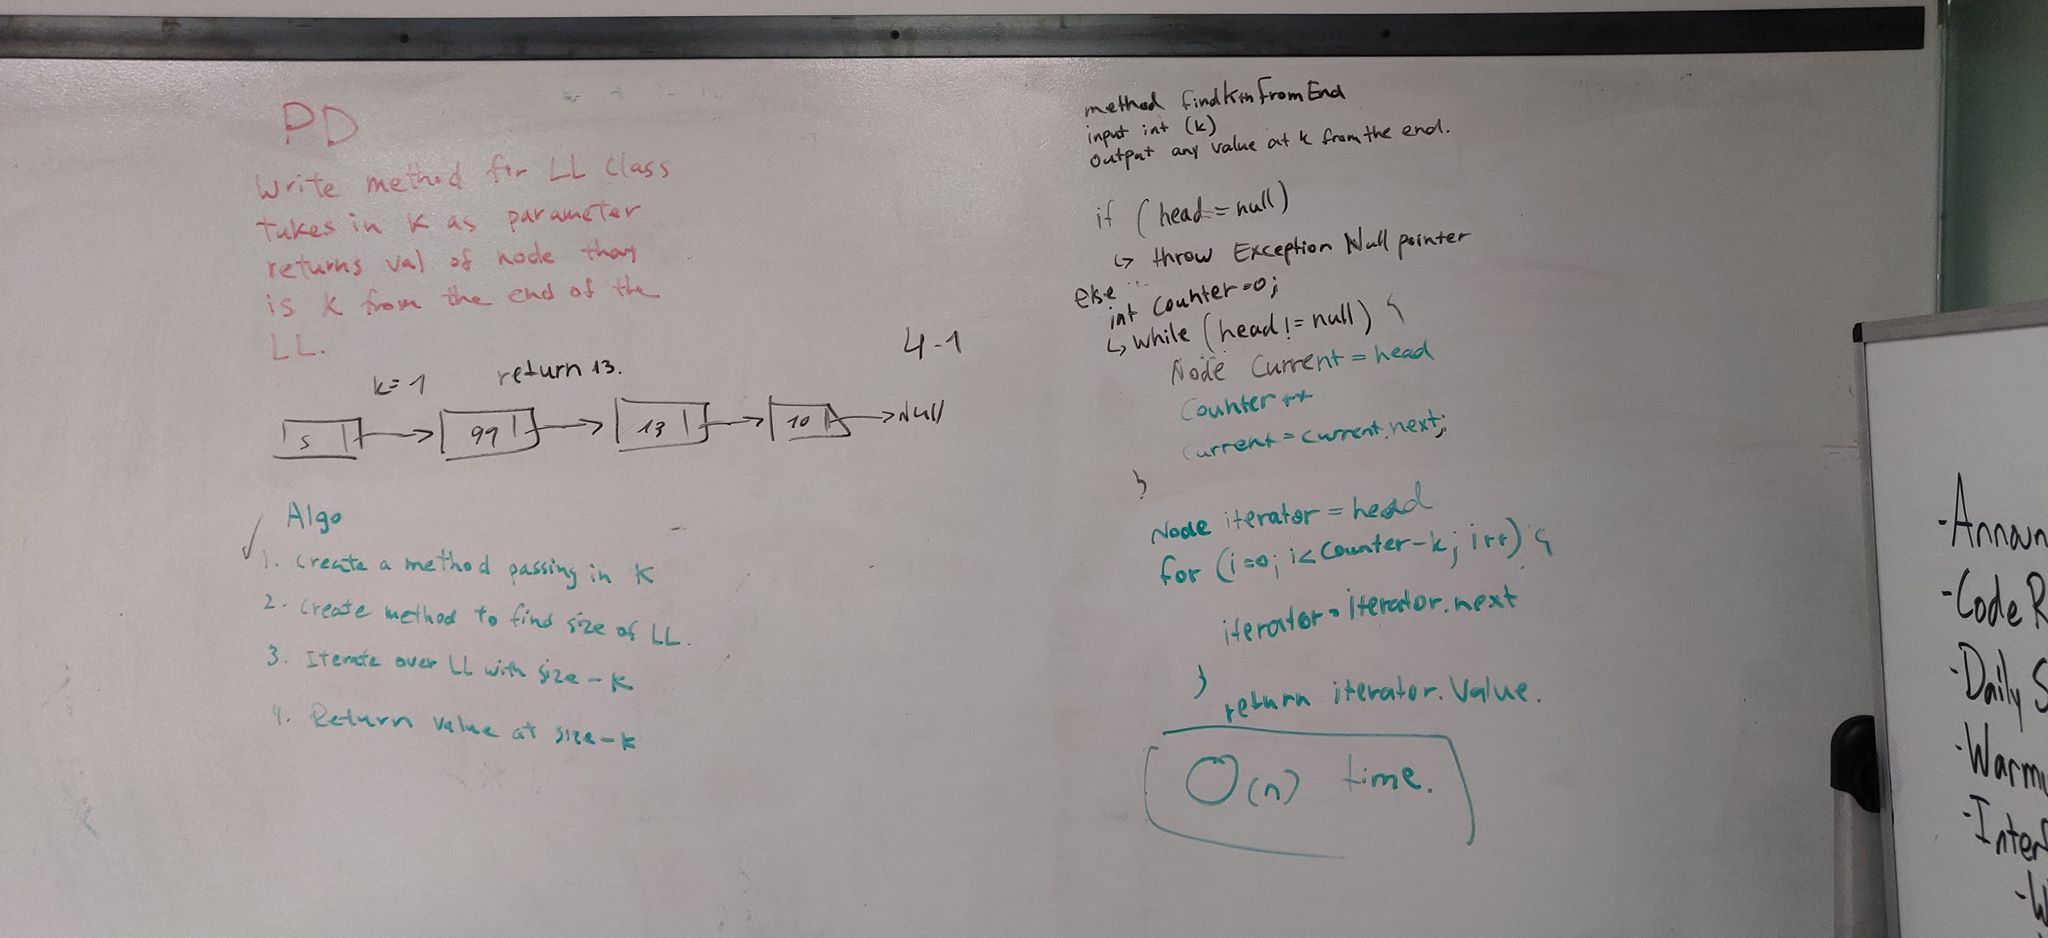 PD
Write method for LL Class
takes in K as parameter
returns val of node that
is K from the end of the
LL.
4-1
k=1 return 13.
5 99 13 10 Null
Algo
✓
1. Create a method passing in K
2. Create method to find size of LL.
3. Iterate over LL with size-k
4. Return value at size-k
method findKthFromEnd
input int (k)
output any value at k from the end.
if (head = null)
↳ throw Exception Null pointer
else
int Counter=0;
↳ while (head != null) {
Node Current = head
Counter ++
Current = current.next;
}
Node iterator = head
for (i=0; i< Counter-k; i++) {
iterator = iterator.next
}
return iterator.Value.
O(n) time.
-Announ
-Code R
-Daily S
-Warmu
-Interf
-W